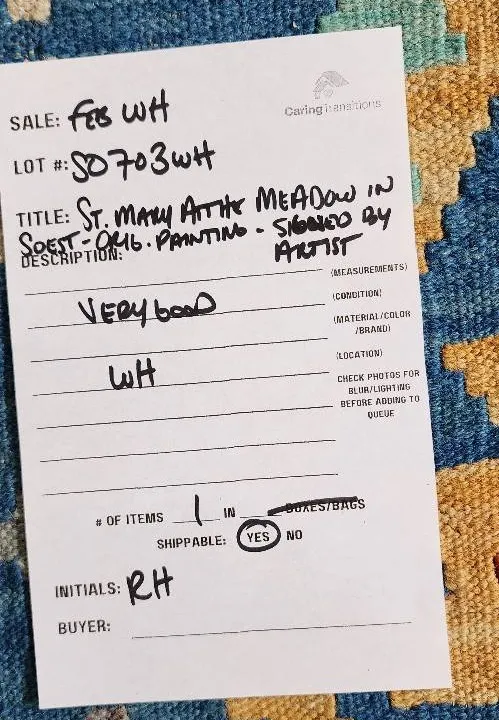 CaringTransitions
SALE: FEB WH
LOT #: SO703WH
TITLE: ST. MARY AT THE MEADOW IN
SOEST - ORIG. PAINTING - SIGNED BY
ARTIST
DESCRIPTION:
(MEASUREMENTS)
VERY GOOD (CONDITION)
(MATERIAL/COLOR
/BRAND)
WH (LOCATION)
CHECK PHOTOS FOR
BLUR/LIGHTING
BEFORE ADDING TO
QUEUE
# OF ITEMS 1 IN BOXES/BAGS
SHIPPABLE: YES NO
INITIALS: RH
BUYER: